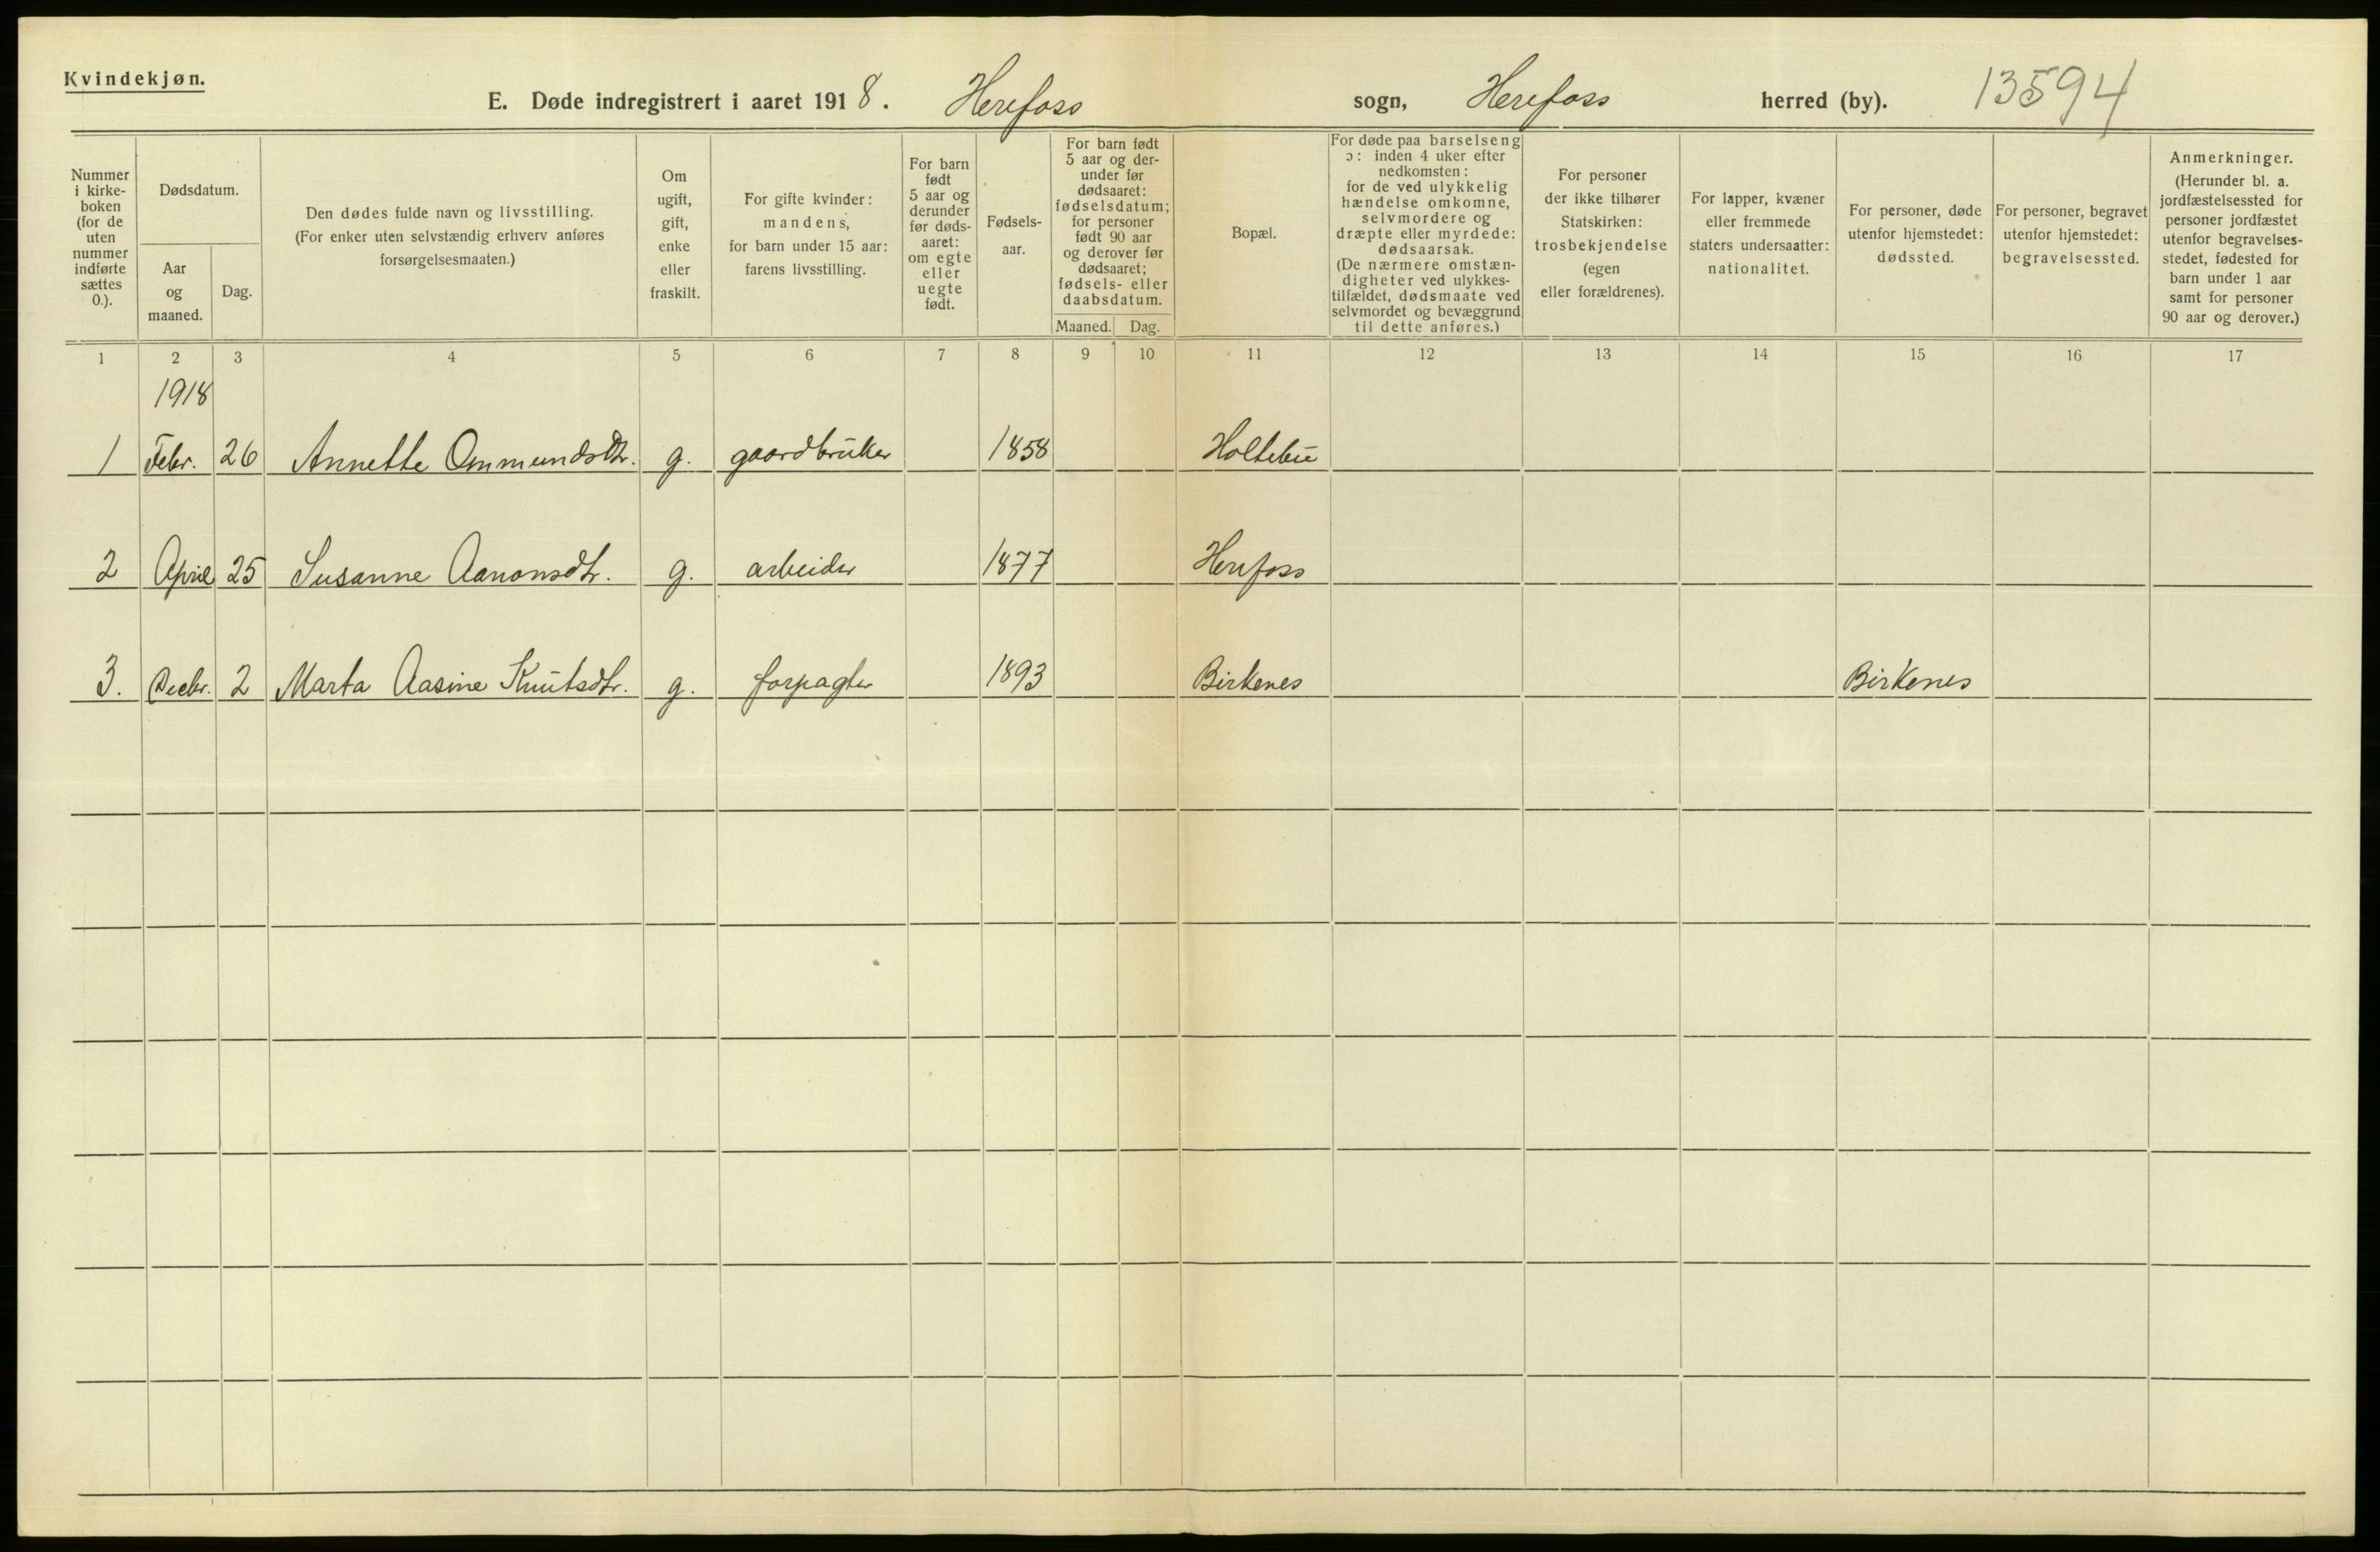 Kvindekjøn.
E. Døde indregistrert i aaret 1918. Herefoss sogn, Herefoss herred (by). 13594
Nummer
i kirke-
boken
(for de
uten
nummer
indførte
sættes
0.).
Dødsdatum.
Aar
og
maaned.
Dag.
Den dødes fulde navn og livsstilling.
(For enker uten selvstændig erhverv anføres
forsørgelsesmaaten.)
Om
ugift,
gift,
enke
eller
fraskilt.
For gifte kvinder:
mandens,
for barn under 15 aar:
farens livsstilling.
For barn
født
5 aar og
derunder
før døds-
aaret:
om egte
eller
uegte
født.
Fødsels-
aar.
For barn født
5 aar og der-
under før
dødsaaret:
fødselsdatum;
for personer
født 90 aar
og derover før
dødsaaret;
fødsels- eller
daabsdatum.
Maaned. Dag.
Bopæl.
For døde paa barselseng
ɔ: inden 4 uker efter
nedkomsten:
for de ved ulykkelig
hændelse omkomne,
selvmordere og
dræpte eller myrdede:
dødsaarsak.
(De nærmere omstæn-
digheter ved ulykkes-
tilfældet, dødsmaate ved
selvmordet og bevæggrund
til dette anføres.)
For personer
der ikke tilhører
Statskirken:
trosbekjendelse
(egen
eller forældrenes).
For lapper, kvæner
eller fremmede
staters undersaatter:
nationalitet.
For personer, døde
utenfor hjemstedet:
dødssted.
For personer, begravet
utenfor hjemstedet:
begravelsessted.
Anmerkninger.
(Herunder bl. a.
jordfæstelsessted for
personer jordfæstet
utenfor begravelses-
stedet, fødested for
barn under 1 aar
samt for personer
90 aar og derover.)
1 2 3 4 5 6 7 8 9 10 11 12 13 14 15 16 17
1918
1 Febr. 26 Annette Ommundsdtr. g. gaardbruker 1858 Holtebu
2 April 25 Susanne Aanonsdtr. g. arbeider 1877 Herefoss
3. Decbr. 2 Marta Aasine Knutsdtr. g. forpagter 1893 Birkenes Birkenes